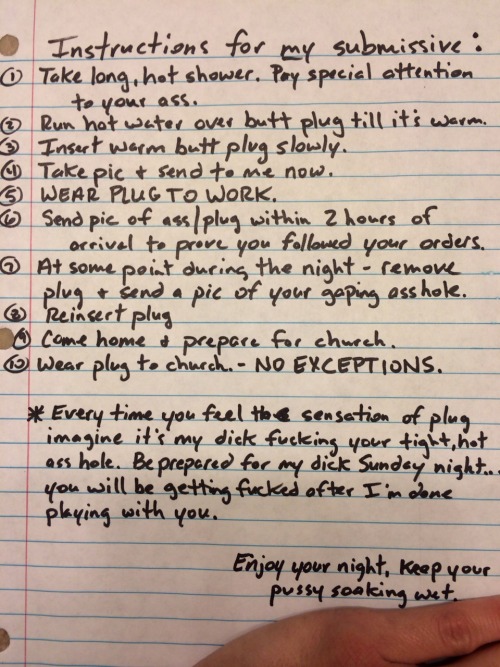 Instructions for my submissive:
① Take long, hot shower. Pay special attention
to your ass.
② Run hot water over butt plug till it's warm.
③ Insert warm butt plug slowly.
④ Take pic + send to me now.
⑤ WEAR PLUG TO WORK.
⑥ Send pic of ass/plug within 2 hours of
arrival to prove you followed your orders.
⑦ At some point during the night - remove
plug + send a pic of your gaping asshole.
⑧ Reinsert plug
⑨ Come home + prepare for church.
⑩ Wear plug to church. - NO EXCEPTIONS.
* Every time you feel the sensation of plug
imagine it's my dick fucking your tight, hot
ass hole. Be prepared for my dick Sunday night...
you will be getting fucked after I'm done
playing with you.
Enjoy your night, keep your
pussy soaking wet.